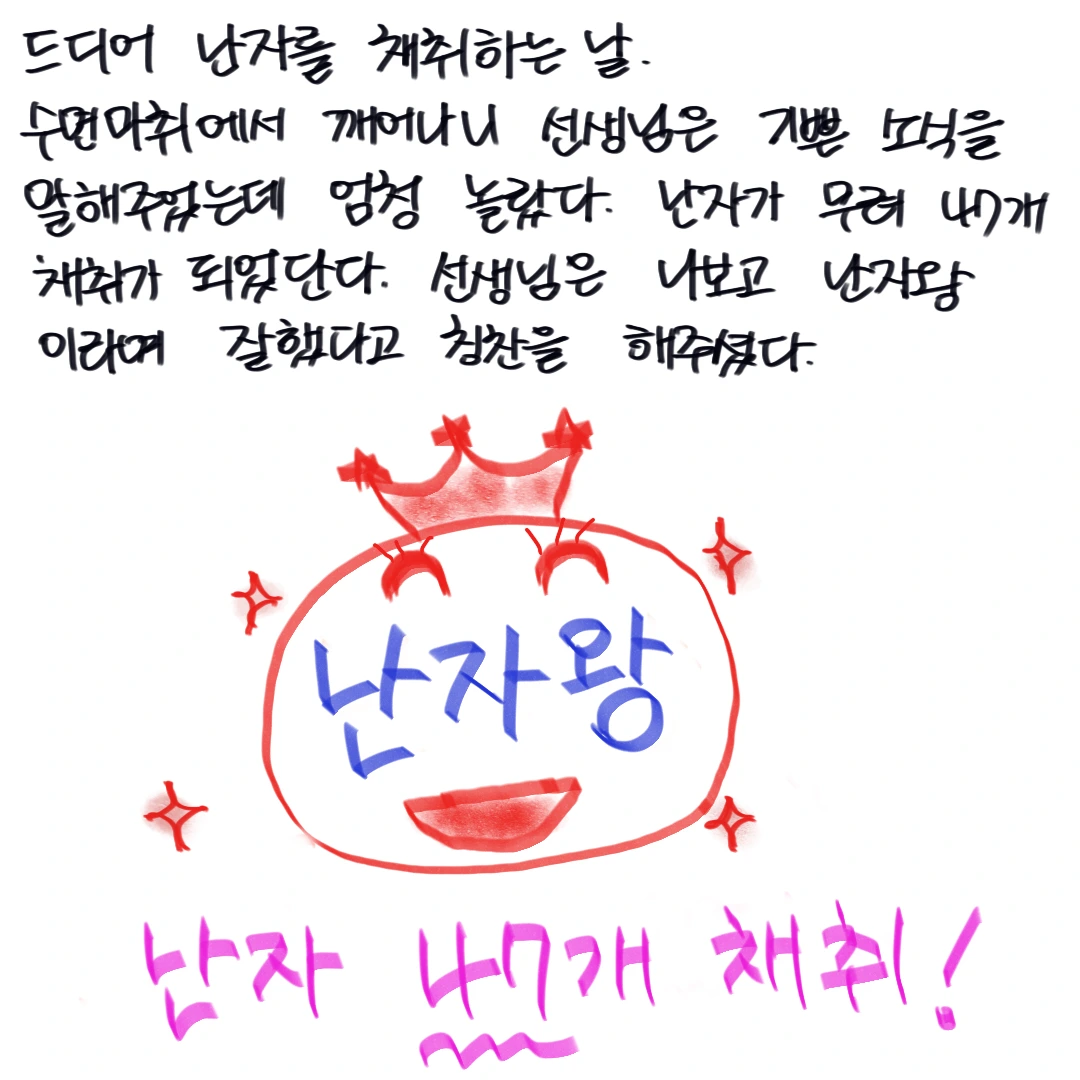 드디어 난자를 채취하는 날.
수면마취에서 깨어나니 선생님은 기쁜 소식을
말해주었는데 엄청 놀랐다. 난자가 무려 47개
채취가 되었단다. 선생님은 나보고 난자왕
이라며 잘했다고 칭찬을 해주셨다.
난자왕
난자 47개 채취!